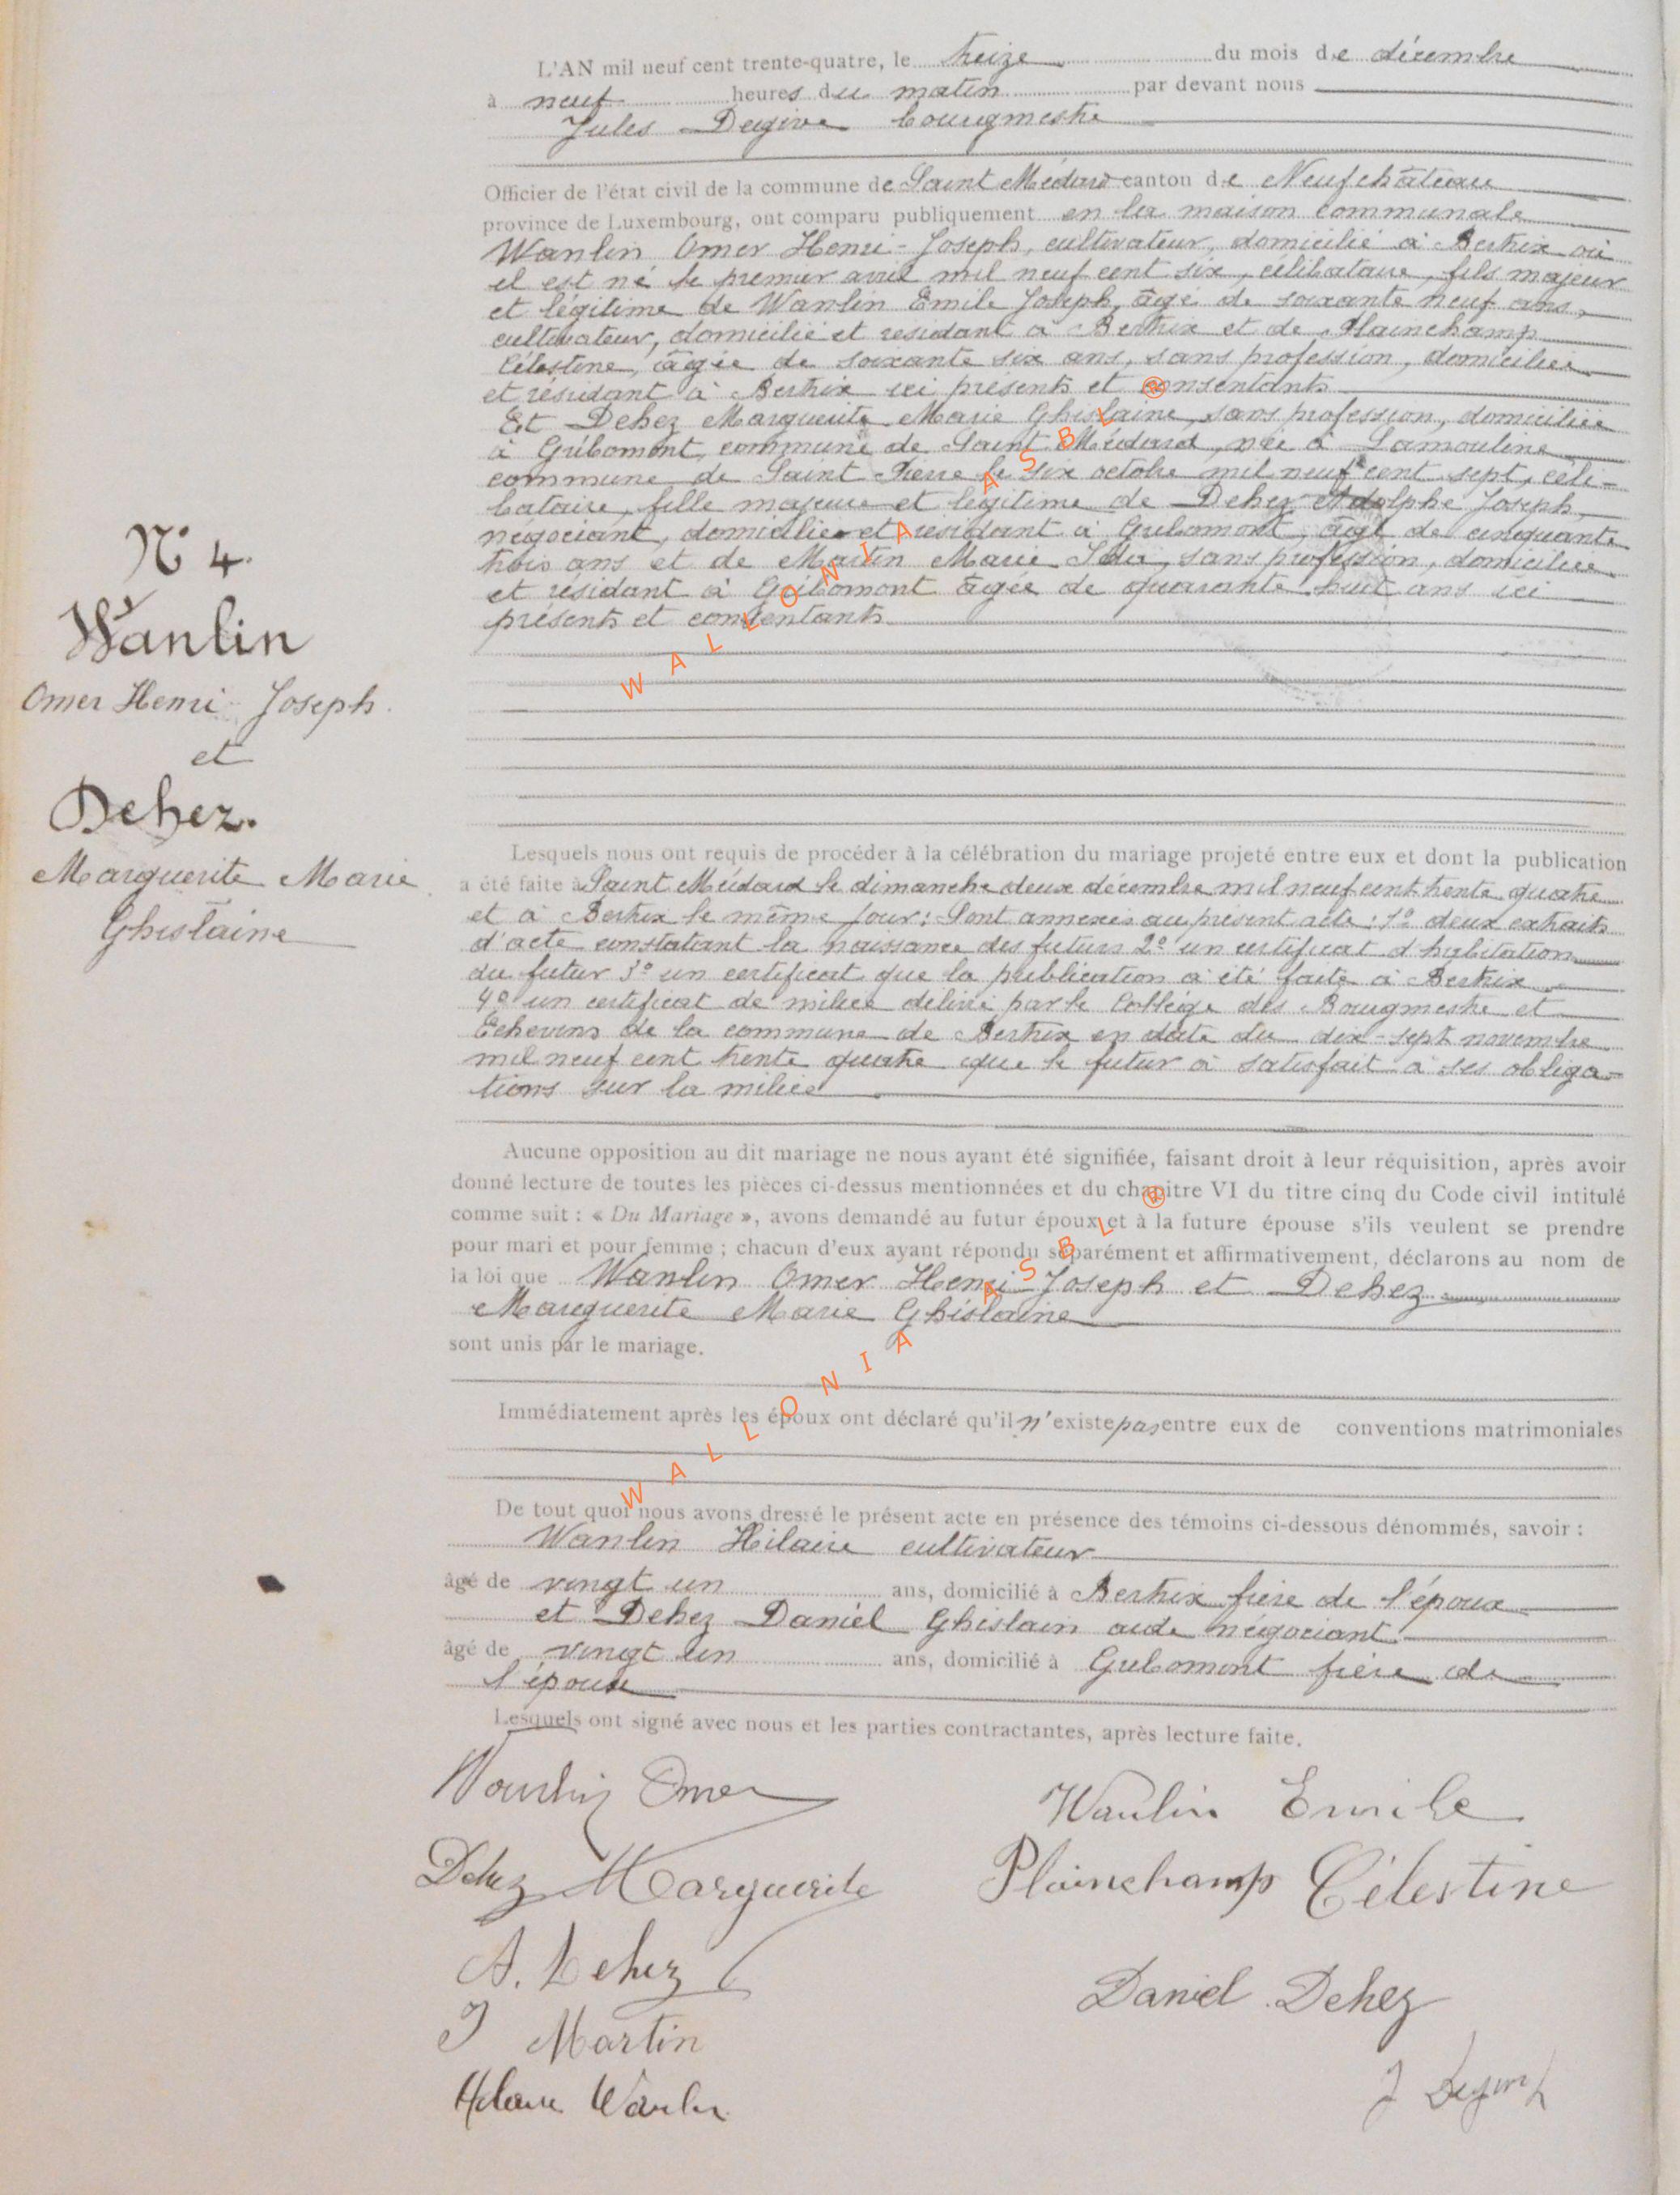 L'AN mil neuf cent trente-quatre, le treize du mois de décembre
à neuf heures du matin par devant nous
Jules Degive bourgmestre
Officier de l'état civil de la commune de Saint Médard canton de Neufchâteau
province de Luxembourg, ont comparu publiquement en la maison communale
Wanlin Omer Henri-Joseph, cultivateur, domicilié à Bertrix où
il est né le premier avril mil neuf cent six, célibataire, fils majeur
et légitime de Wanlin Emile Joseph, âgé de soixante neuf ans,
cultivateur, domicilié et residant à Bertrix et de Plainchamp
Célestine, âgée de soixante six ans, sans profession, domiciliée
et résidant à Bertrix ici présents et consentants
Et Dehez Marguerite Marie Ghislaine, sans profession, domiciliée
à Gribomont, commune de Saint Médard, née à Lamouline
commune de Saint Pierre le six octobre mil neuf cent sept, céli-
bataire, fille majeure et légitime de Dehez Adolphe Joseph,
négociant, domicilié et residant à Gribomont, âgé de cinquante
trois ans et de Martin Marie, sans profession, domiciliée
et résidant à Gribomont âgée de quarante huit ans ici
présents et consentants
N° 4.
Wanlin
Omer Henri-Joseph.
et
Dehez.
Marguerite Marie
Ghislaine
Lesquels nous ont requis de procéder à la célébration du mariage projeté entre eux et dont la publication
a été faite à Saint Médard le dimanche deux décembre mil neuf cent trente quatre
et à Bertrix le même jour: Sont annexés au présent acte: 1° deux extraits
d'acte constatant la naissance des futurs 2° un certificat d'habitation
du futur 3° un certificat que la publication a été faite à Bertrix
4° un certificat de milice délivré par le Collège des Bourgmestre et
Echevins de la commune de Bertrix en date du dix-sept novembre
mil neuf cent trente quatre que le futur a satisfait à ses obliga-
tions sur la milice
Aucune opposition au dit mariage ne nous ayant été signifiée, faisant droit à leur réquisition, après avoir
donné lecture de toutes les pièces ci-dessus mentionnées et du chapitre VI du titre cinq du Code civil intitulé
comme suit : « Du Mariage », avons demandé au futur époux et à la future épouse s'ils veulent se prendre
pour mari et pour femme ; chacun d'eux ayant répondu séparément et affirmativement, déclarons au nom de
la loi que Wanlin Omer Henri-Joseph et Dehez
Marguerite Marie Ghislaine
sont unis par le mariage.
Immédiatement après les époux ont déclaré qu'il n'existe pas entre eux de conventions matrimoniales
De tout quoi nous avons dressé le présent acte en présence des témoins ci-dessous dénommés, savoir :
Wanlin Hilaire cultivateur
âgé de vingt un ans, domicilié à Bertrix frère de l'époux
et Dehez Daniel Ghislain aide négociant
âgé de vingt un ans, domicilié à Gribomont frère de
l'épouse
Lesquels ont signé avec nous et les parties contractantes, après lecture faite.
Wanlin Omer
Wanlin Emile
Dehez Marguerite
Plainchamp Célestine
A. Dehez
Daniel Dehez
Martin
Hilaire Wanlin
WALLONIA ASBL ®
WALLONIA ASBL ®